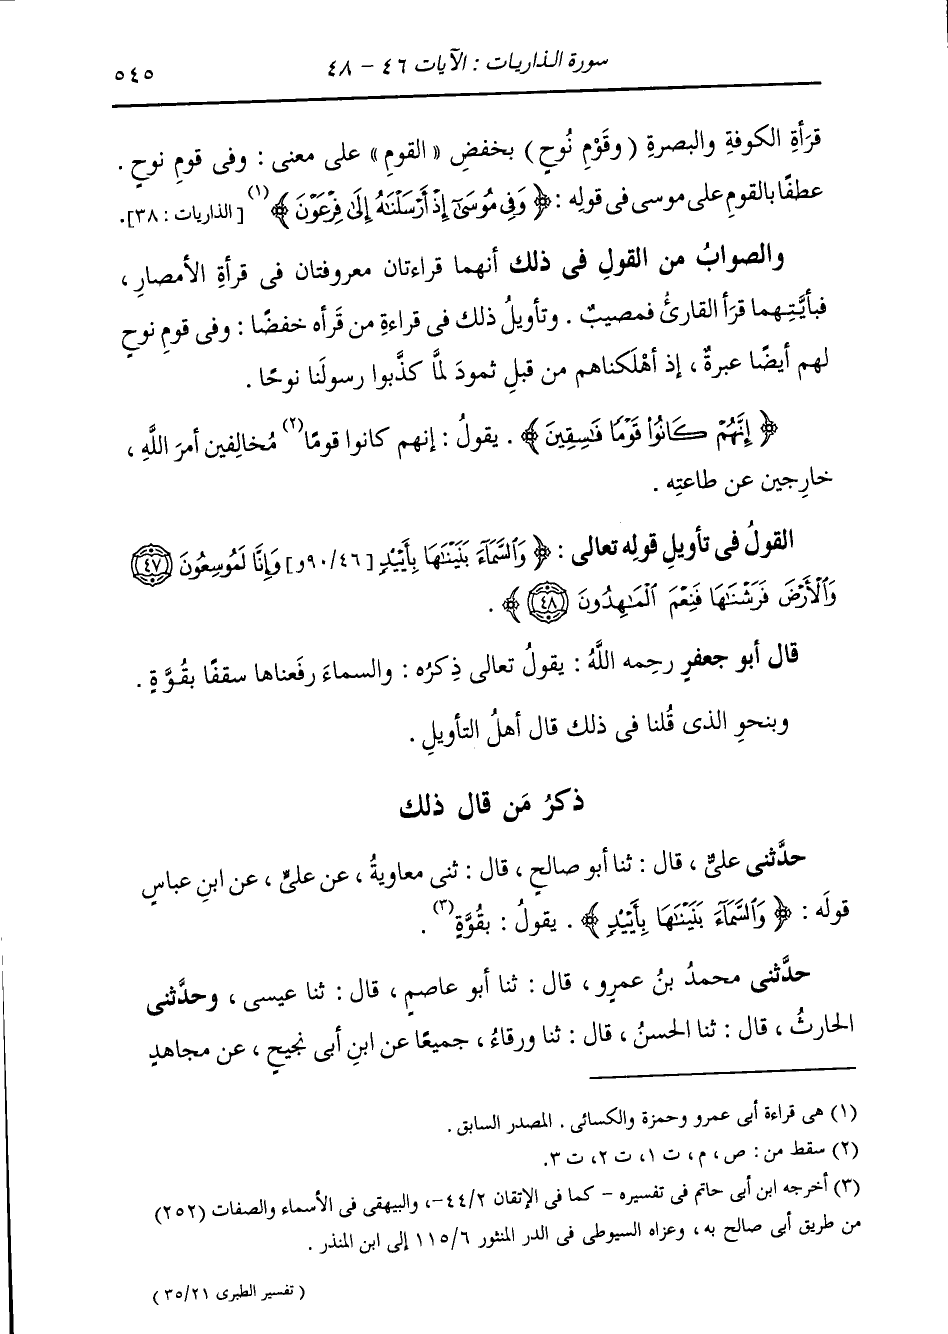 سورة الذاريات : الآيات ٤٦ - ٤٨
٥٤٥
قرَأةِ الكوفةِ والبصرةِ ( وقَوْمِ نُوحٍ ) بخفضِ « القومِ » على معنى : وفى قومِ نوحٍ .
عطفًا بالقومِ على موسى فى قولِه : ﴿ وَفِى مُوسَىٰٓ إِذْ أَرْسَلْنَٰهُ إِلَىٰ فِرْعَوْنَ ﴾(١) [ الذاريات : ٣٨].
والصوابُ من القولِ فى ذلك أنهما قراءتان معروفتان فى قرأةِ الأمصارِ ،
فبأيَّتِهما قرَأ القارئُ فمصيبٌ . وتأويلُ ذلك فى قراءةِ من قَرأه خفضًا : وفى قومِ نوحٍ
لهم أيضًا عبرةٌ ، إذ أهْلَكناهم من قبلِ ثمودَ لمَّا كذَّبوا رسولَنا نوحًا .
﴿ إِنَّهُمْ كَانُوا۟ قَوْمًا فَٰسِقِينَ ﴾ . يقولُ : إنهم كانوا قومًا(٢) مُخالِفين أمرَ اللَّهِ ،
خارِجين عن طاعتِه .
القولُ فى تأويلِ قولِه تعالى : ﴿ وَٱلسَّمَآءَ بَنَيْنَٰهَا بِأَيْي۟دٍ [٩٠/٤٦و] وَإِنَّا لَمُوسِعُونَ ٤٧
وَٱلْأَرْضَ فَرَشْنَٰهَا فَنِعْمَ ٱلْمَٰهِدُونَ ٤٨ ﴾ .
قال أبو جعفرٍ رحِمه اللَّهُ : يقولُ تعالى ذِكرُه : والسماءَ رفَعناها سقفًا بقُوَّةٍ .
وبنحوِ الذى قُلنا فى ذلك قال أهلُ التأويلِ .
ذكرُ مَن قال ذلك
حدَّثنى علىٌّ ، قال : ثنا أبو صالحٍ ، قال : ثنى معاويةُ ، عن علىٍّ ، عن ابنِ عباسٍ
قولَه : ﴿ وَٱلسَّمَآءَ بَنَيْنَٰهَا بِأَيْي۟دٍ ﴾ . يقولُ : بقُوَّةٍ(٣) .
حدَّثنى محمدُ بنُ عمرٍو ، قال : ثنا أبو عاصمٍ ، قال : ثنا عيسى ، وحدَّثنى
الحارثُ ، قال : ثنا الحسنُ ، قال : ثنا ورقاءُ ، جميعًا عن ابنِ أبى نجيحٍ ، عن مجاهدٍ
(١) هى قراءة أبى عمرو وحمزة والكسائى . المصدر السابق .
(٢) سقط من : ص ، م ، ت ١، ت ٢، ت ٣.
(٣) أخرجه ابن أبى حاتم فى تفسيره - كما فى الإتقان ٤٤/٢-، والبيهقى فى الأسماء والصفات (٢٥٢)
من طريق أبى صالح به ، وعزاه السيوطى فى الدر المنثور ١١٥/٦ إلى ابن المنذر .
( تفسير الطبرى ٣٥/٢١ )